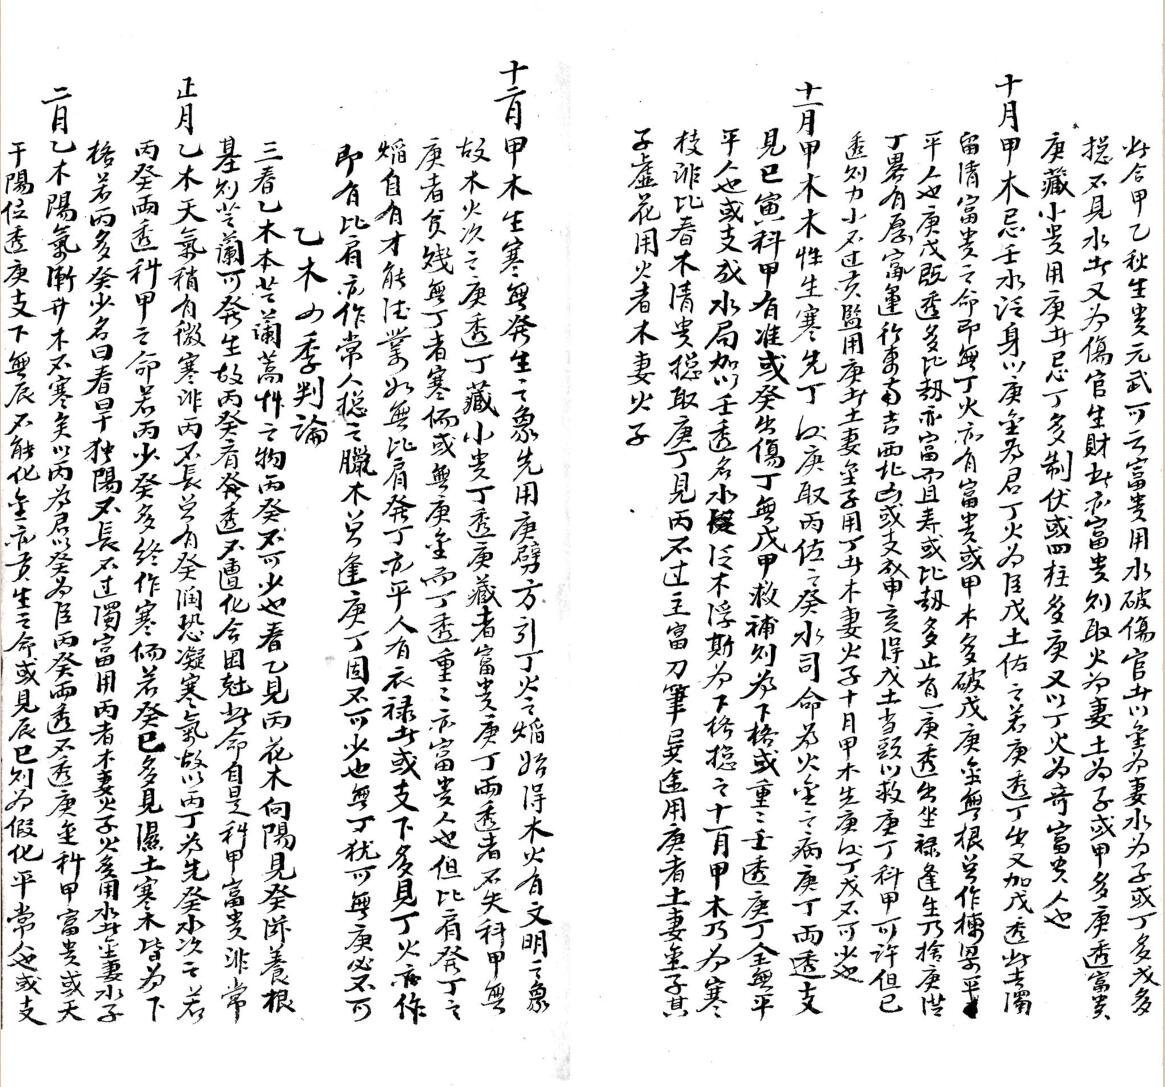 此合甲乙秋生貴元武可云富貴用水破傷官者以金為妻水為子或丁多戊多
摠不見水者又為傷官生財者亦富貴則取火為妻土為子或甲多庚透富貴
庚藏小貴用庚者忌丁多制伏或四柱多庚又以丁火為奇富貴人也
十月甲木忌壬水泛身以庚金為君丁火為臣戊土佐之若庚透丁出又加戊透此去濁
留清富貴之命即無丁火亦有富貴或甲木多破戊庚金無根豈作棟梁平
平人也庚戊既透多比刼亦富而且寿或比刼多止有一庚透出坐祿逢生乃捨庚從
丁畧有厚富運行東南吉西北凶或支成申亥得戊土當頭以救庚丁科甲可許但已
透則力小不过貢監用庚者土妻金子用丁者木妻火子十月甲木先庚次丁戊不可少也
十一月甲木木性生寒先丁次庚取丙佐之癸水司命為火金之病庚丁兩透支
見巳寅科甲有准或癸出傷丁無戊甲救補則為下格或重二壬透庚丁全無平
平人也或支成水局加以壬透名水泛木浮斯為下格摠之十一月甲木乃為寒
枝非比春木清貴摠取庚丁見丙不过主富刀筆異途用庚者土妻金子其
子虛花用火者木妻火子
十二月甲木生寒無發生之象先用庚劈方引丁火之焰始得木火有文明之象
故木火次之庚透丁藏小貴丁透庚藏者富貴庚丁兩透者不失科甲無
庚者貧賤無丁者寒儒或無庚金而丁透重二亦富貴人也但比肩發丁之
焰自有才能德業如無比肩發丁亦平人有衣祿者或支下多見丁火亦作
即有比肩亦作常人摠之臘木豈逢庚丁固不可少也無丁犹可無庚必不可
乙木四季判論
三春乙木本芝蘭蒿草之物丙癸不可少也春乙見丙花木向陽見癸滋養根
基則芝蘭可發生故丙癸有發透不遭化合囬尅此命自是科甲富貴非常
正月乙木天氣稍有微寒非丙不長豈有癸润恐凝寒氣故以丙丁為先癸水次之若
丙癸兩透科甲之命若丙少癸多終作寒儒若癸巳多見濕土寒木皆為下
格若丙多癸少名曰春旱独陽不長不过濁富用丙者木妻火子火多用水者金妻水子
二月乙木陽氣漸升木不寒矣以丙為君以癸為臣丙癸兩透不透庚金科甲富貴或天
干陽位透庚支下無辰不能化金亦貢生之命或見辰巳則為假化平常人也或支